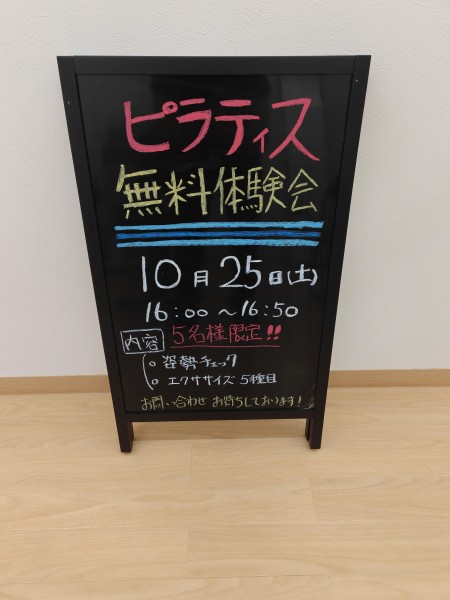 ピラティス
無料体験会
10月25日(土)
16:00〜16:50
内容 5名様限定!!
。姿勢チェック
。エクササイズ 5種目
お問い合わせ お待ちしております!